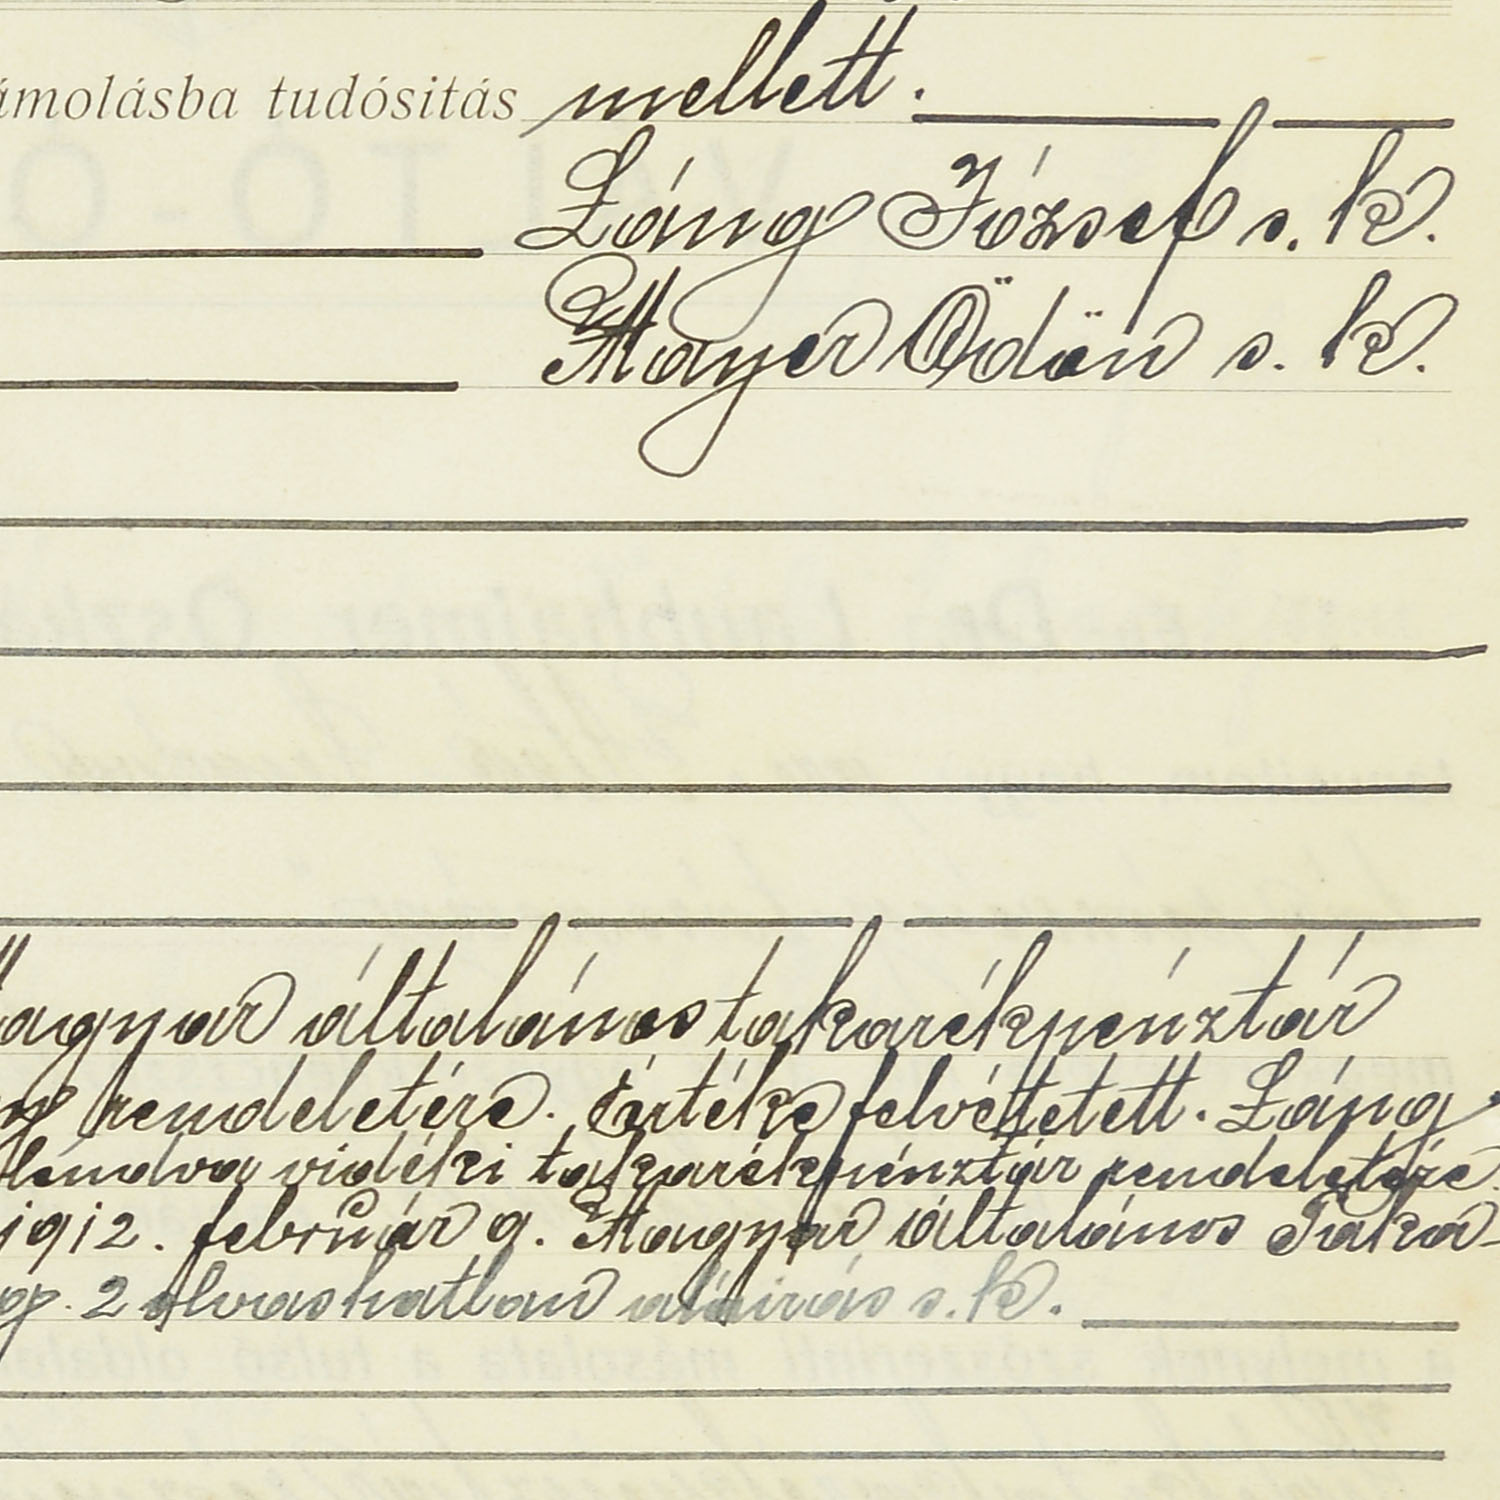 ámolásba tudósitás mellett.
Láng József s. k.
Mayer Ödön s. k.
agyar általános takarékpénztár
rendeletére. Értéke felvétetett. Láng
lendva vidéki takarékpénztár rendeletére.
1912. február 9. Magyar általános Taka-
2 olvashatlan aláirás s. k.